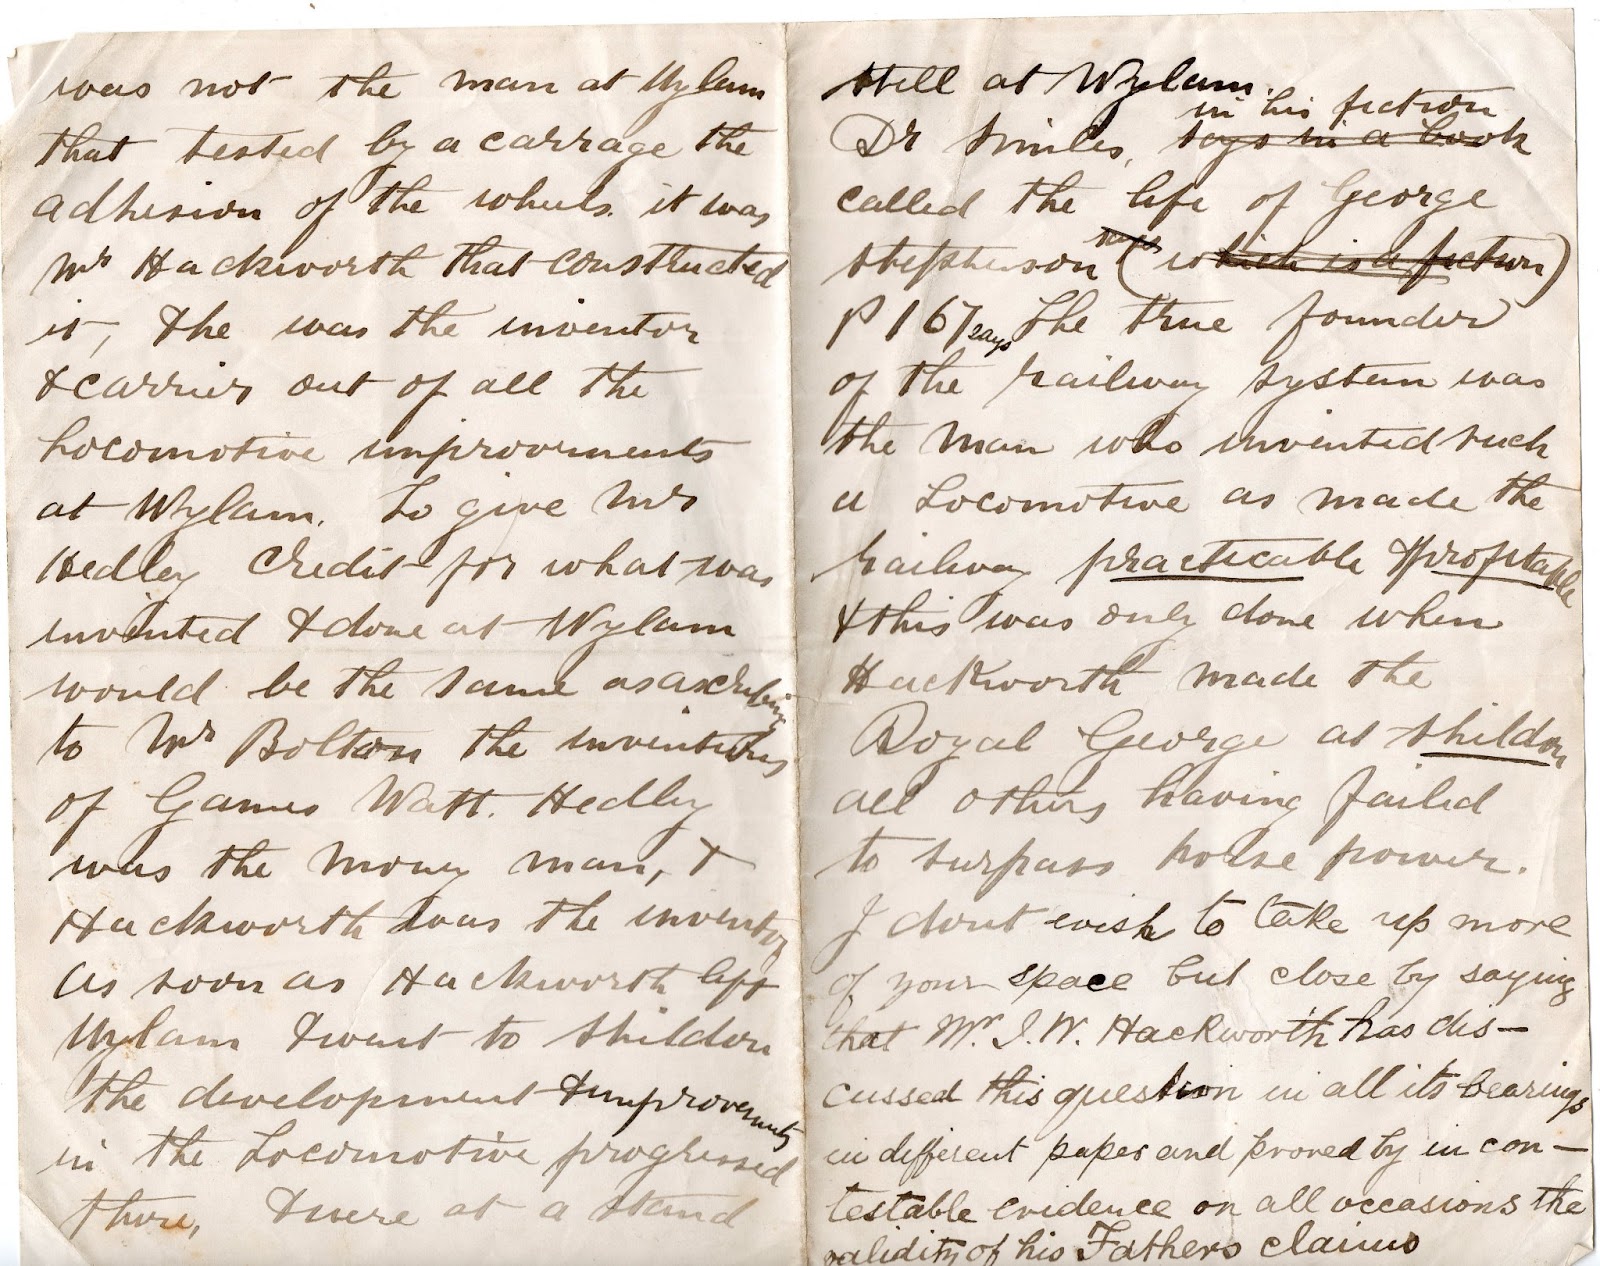 was not the man at Wylam
that tested by a carrage the
adhesion of the wheels. it was
Mr Hackworth that constructed
it, & he was the inventor
& carrier out of all the
Locomotive improvements
at Wylam. To give Mr
Hedley Credit for what was
invented & done at Wylam
would be the same as ascribing
to Mr Bolton the inventions
of James Watt. Hedley
was the money man, &
Hackworth was the inventor
As soon as Hackworth left
Wylam & went to Shildon
the development & improvements
in the Locomotive progressed
there, & were at a stand
still at Wylam.
in his fiction
Dr Smiles, says in a book
called the life of George
Stephenson says (which is a fiction)
P 167 says The true founder
of the railway system was
the man who invented such
a Locomotive as made the
railway practicable & profitable
& this was only done when
Hackworth made the
Royal George at Shildon
all others having failed
to surpass horse power.
I dont wish to take up more
of your space but close by saying
that Mr. J. W. Hackworth has dis-
cussed this question in all its bearings
in different papes and proved by in con-
testable evidence on all occasions the
validity of his Fathers claims